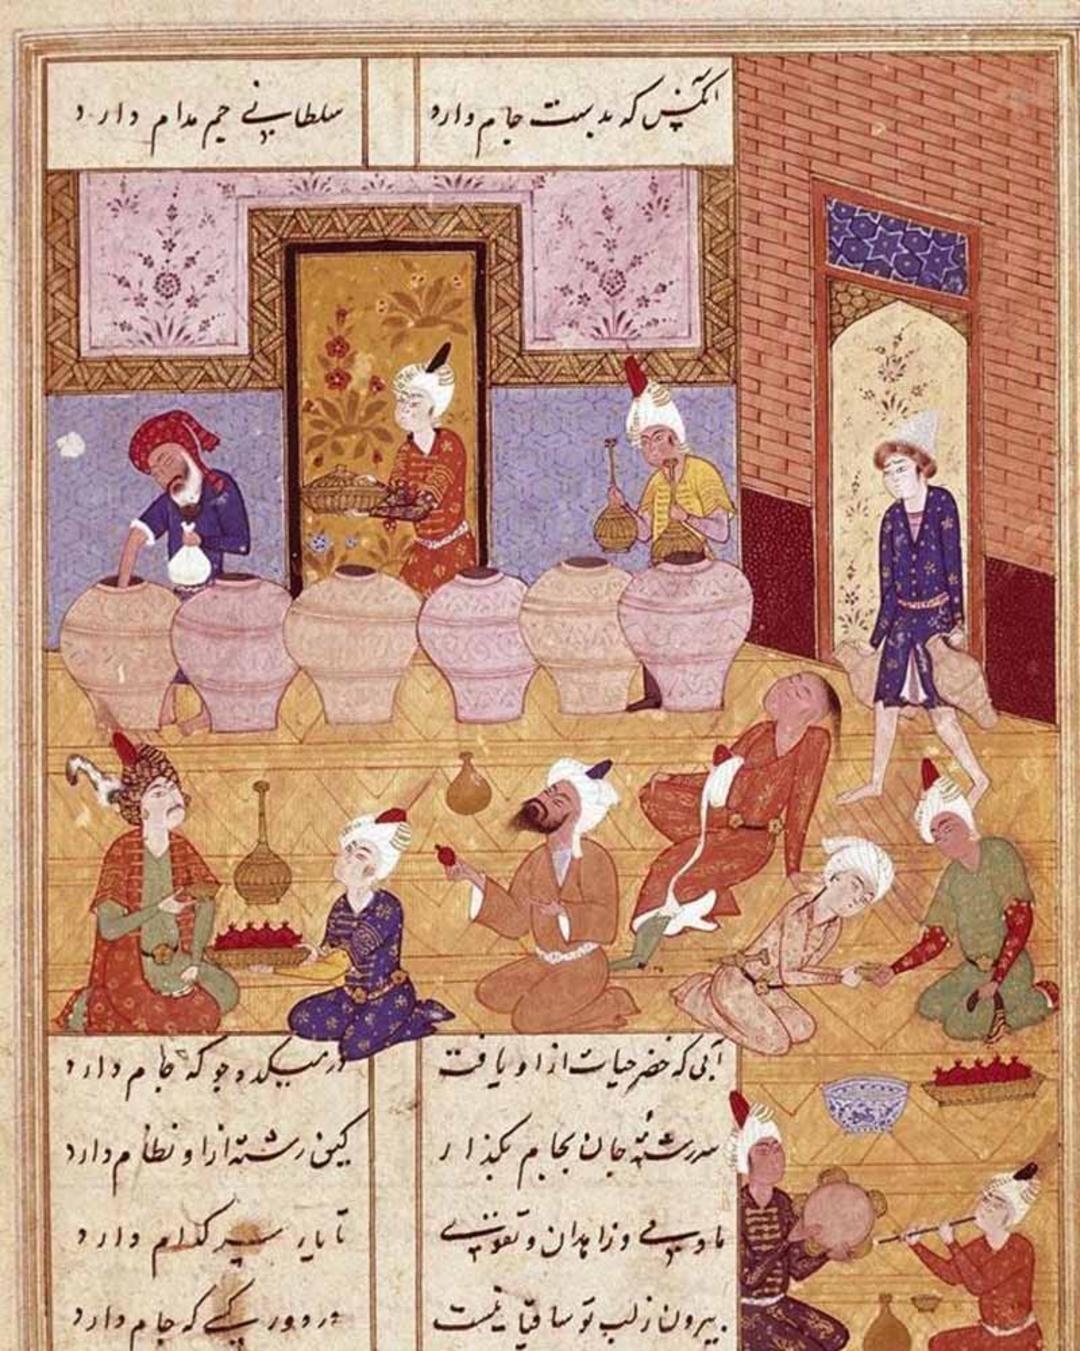 آنکس که بدست جام دارد سلطانی جم مدام دارد
آبی که خضر حیات ازو یافت در میکده جو که جام دارد
سررشتهٔ جان بجام بگذار کین رشته ازو نظام دارد
ما و می و زاهدان و تقوی تا یار سر کدام دارد
بیرون ز لب تو ساقیا نیست در دور کسی که جام دارد